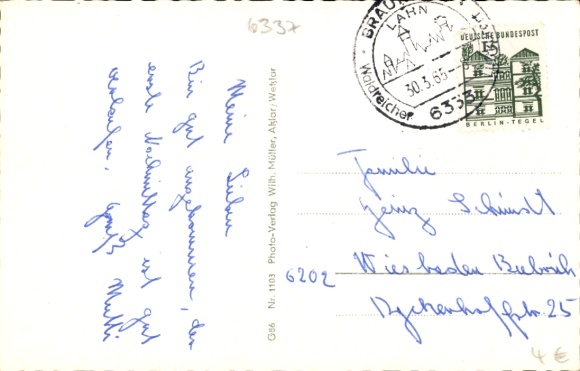 6337
Meine Lieben
Bin gut angekommen, der
erste Nachmittag ist gut
verlaufen. Gruß
Mutti
G86 Nr. 1103 Photo-Verlag Wilh. Müller, Aßlar/Wetzlar
BRAUN
LAHN
30.3.65
6333
Waldreicher
DEUTSCHE BUNDESPOST
15
BERLIN-TEGEL
Familie
Heinz Schmidt
6202 Wiesbaden Biebrich
Dyckerhoffstr. 25
4 €